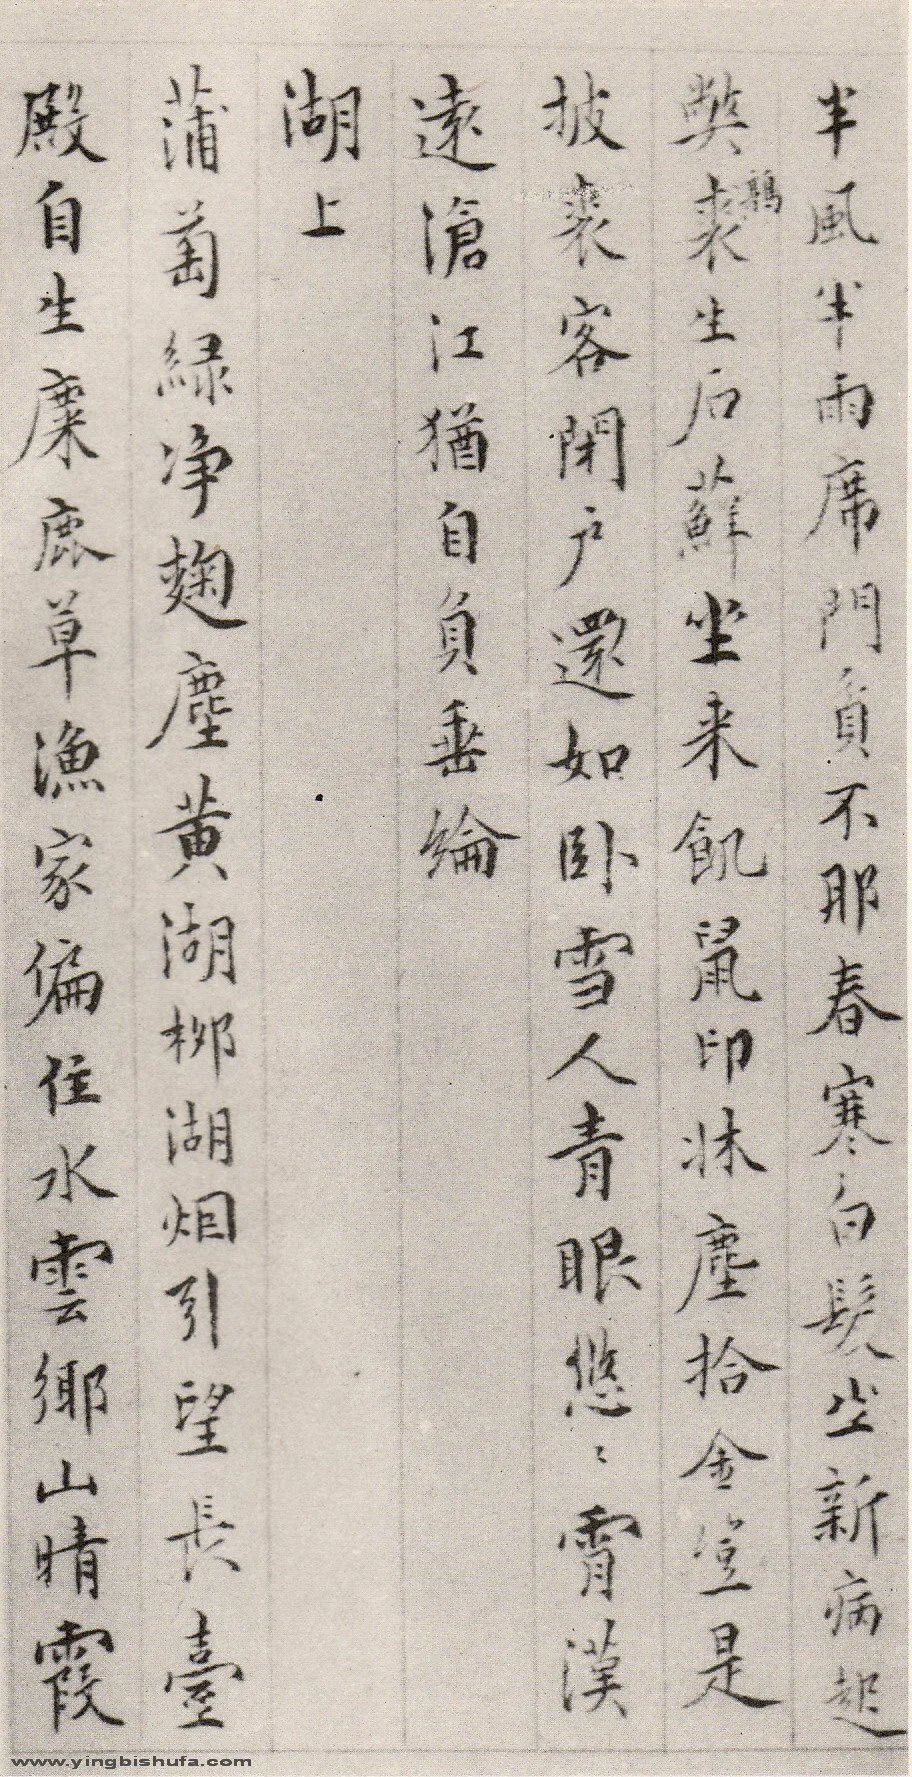 半風半雨席門負不耶春寒白髮新病起
弊裘鶉生后蘚坐来飢鼠印牀塵拾金豈是
披裘客閉户還如卧雪人青眼悠〻霄漢
遠滄江猶自負垂綸
湖上
蒲萄緑净麹塵黄湖柳湖烟引望長臺
殿自生麋鹿草漁家偏住水雲鄉山晴霞
www.yingbishufa.com